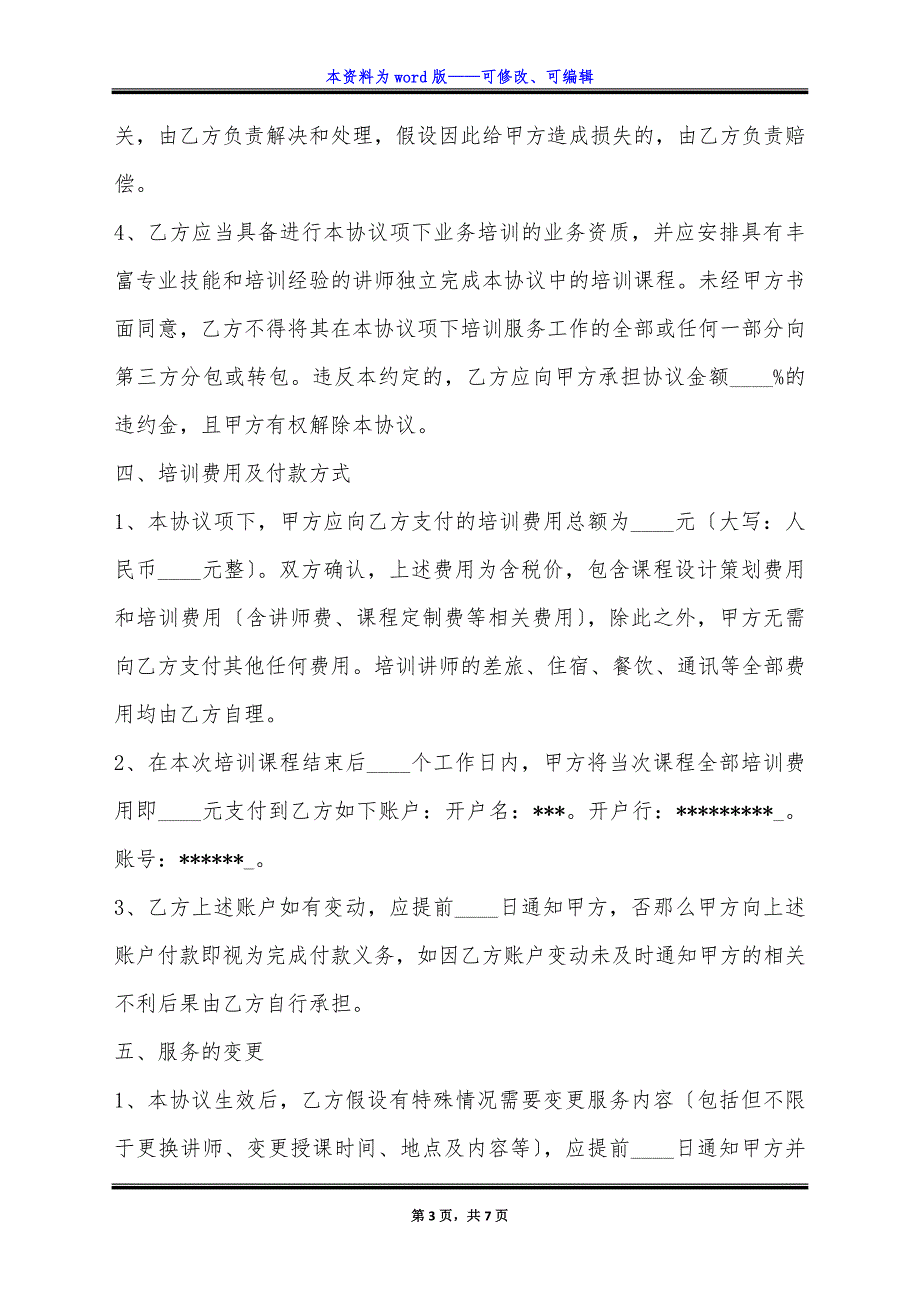 本资料为 word 版——可修改、可编辑
关，由乙方负责解决和处理，假设因此给甲方造成损失的，由乙方负责赔
偿。
4、乙方应当具备进行本协议项下业务培训的业务资质，并应安排具有丰
富专业技能和培训经验的讲师独立完成本协议中的培训课程。未经甲方书
面同意，乙方不得将其在本协议项下培训服务工作的全部或任何一部分向
第三方分包或转包。违反本约定的，乙方应向甲方承担协议金额____%的
违约金，且甲方有权解除本协议。
四、培训费用及付款方式
1、本协议项下，甲方应向乙方支付的培训费用总额为____元〔大写：人
民币____元整〕。双方确认，上述费用为含税价，包含课程设计策划费用
和培训费用〔含讲师费、课程定制费等相关费用〕，除此之外，甲方无需
向乙方支付其他任何费用。培训讲师的差旅、住宿、餐饮、通讯等全部费
用均由乙方自理。
2、在本次培训课程结束后____个工作日内，甲方将当次课程全部培训费
用即____元支付到乙方如下账户：开户名：***。开户行：*********_。
账号：******_。
3、乙方上述账户如有变动，应提前____日通知甲方，否那么甲方向上述
账户付款即视为完成付款义务，如因乙方账户变动未及时通知甲方的相关
不利后果由乙方自行承担。
五、服务的变更
1、本协议生效后，乙方假设有特殊情况需要变更服务内容〔包括但不限
于更换讲师、变更授课时间、地点及内容等〕，应提前____日通知甲方并
第 3 页，共 7 页